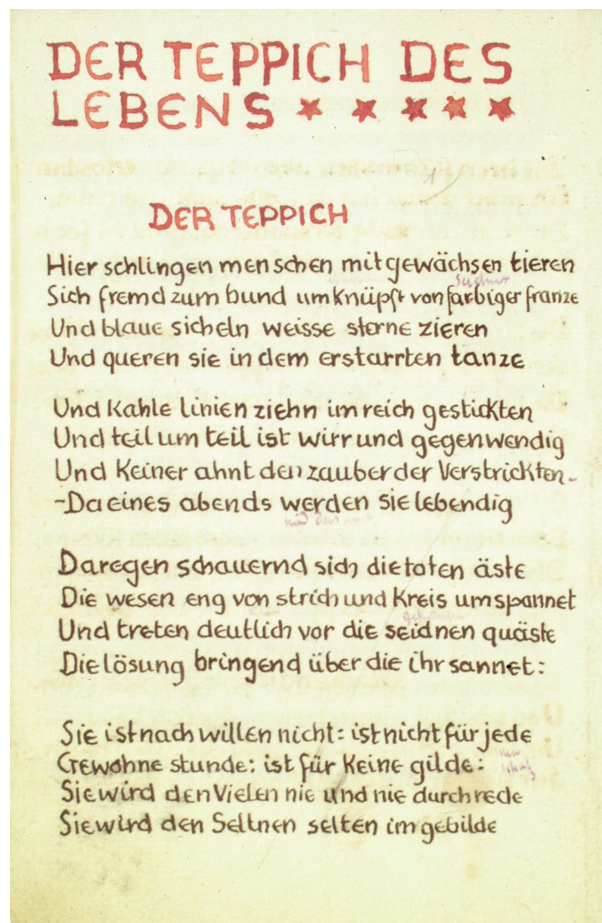 DER TEPPICH DES
LEBENS
DER TEPPICH
Hier schlingen menschen mit gewächsen tieren
Sich fremd zum bund umknüpft von farbiger franze
Und blaue sicheln weisse sterne zieren
Und queren sie in dem erstarrten tanze
Und kahle linien ziehn im reich gestickten
Und teil um teil ist wirr und gegenwendig
Und keiner ahnt den zauber der Verstrickten-
-Da eines abends werden sie lebendig
Da regen schauernd sich die toten äste
Die wesen eng von strich und kreis umspannet
Und treten deutlich vor die seidnen quäste
Die lösung bringend über die ihr sannet:
Sie ist nach willen nicht: ist nicht für jede
Gewohne stunde: ist für keine gilde:
Sie wird den Vielen nie und nie durch rede
Sie wird den Seltnen selten im gebilde